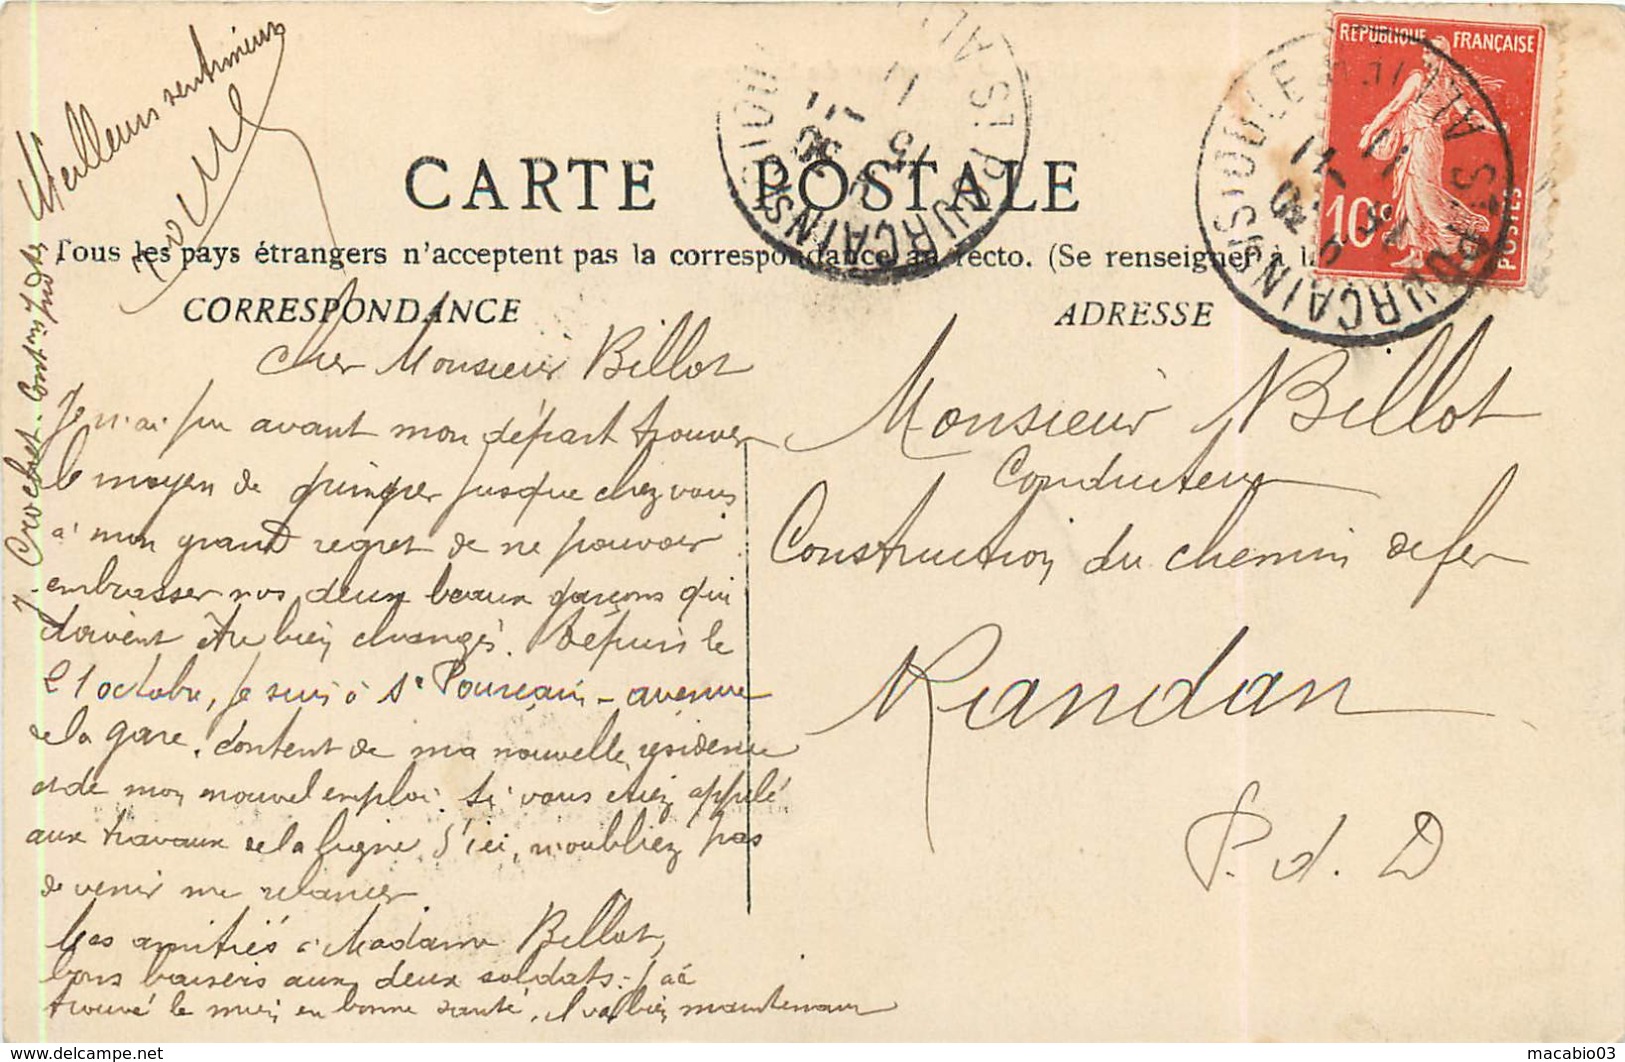 CARTE POSTALE
Tous les pays étrangers n'acceptent pas la correspondance au recto. (Se renseigner à la
CORRESPONDANCE
ADRESSE
REPUBLIQUE FRANÇAISE
10c
POSTES
ST POURCAIN S SIOULE ALLIER
ST POURCAIN S SIOULE AL
Cher Monsieur Billot
Je n'ai pu avant mon départ trouver
le moyen de grimper jusque chez vous
à mon grand regret de ne pouvoir
embrasser vos deux beaux garçons qui
doivent être bien changés. Depuis le
21 octobre, je suis à St Pourçain – avenue
de la gare. Content de ma nouvelle résidence
et de mon nouvel emploi. Si vous étiez appelé
aux travaux de la ligne d'ici, n'oubliez pas
de venir me relancer.
Mes amitiés à Madame Billot,
bons baisers aux deux soldats. J'ai
trouvé le mien en bonne santé, il va bien maintenant
Meilleurs sentiments
J. Crochet. Cont
Monsieur Billot
Conducteur
Construction du chemin de fer
Randan
P. d. D
macabio03